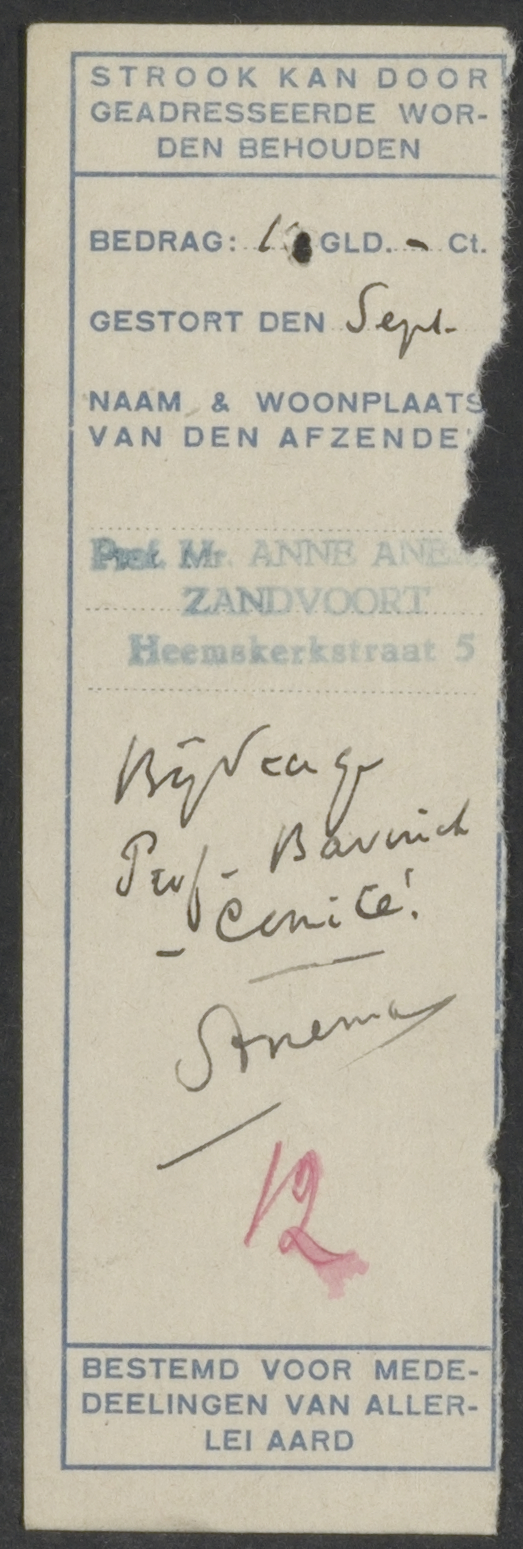 STROOK KAN DOOR
GEADRESSEERDE WOR-
DEN BEHOUDEN
BEDRAG: GLD. - Ct.
GESTORT DEN Sept-
NAAM & WOONPLAATS
VAN DEN AFZENDE
Prof. Mr. ANNE ANE
ZANDVOORT
Heemskerkstraat 5
Bijdrage
Prof. Bavinck
- Comité!
Anema
12
BESTEMD VOOR MEDE-
DEELINGEN VAN ALLER-
LEI AARD